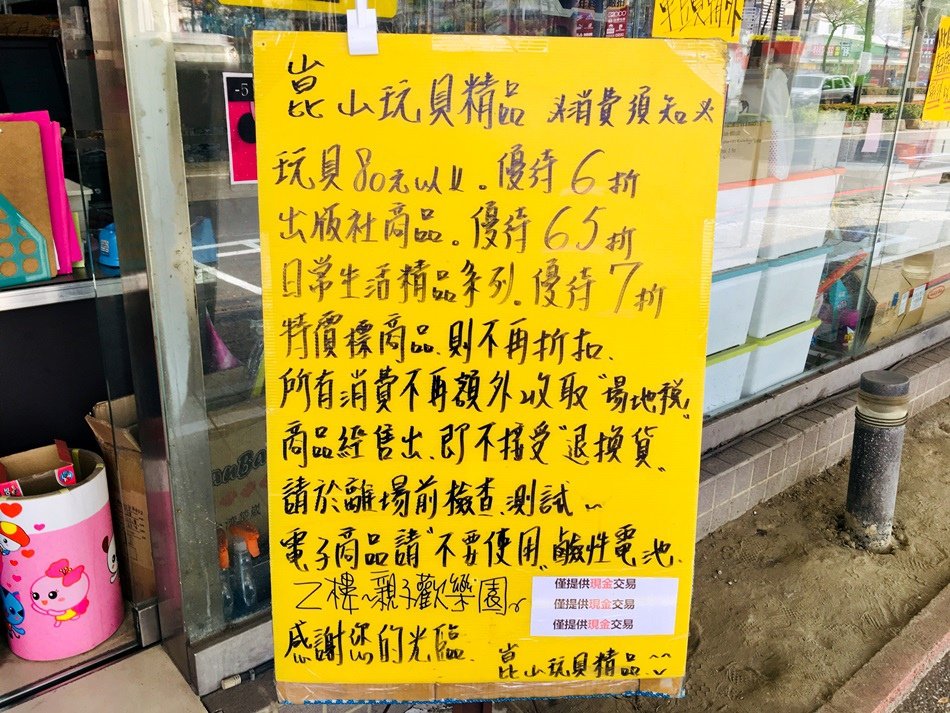 崑山玩具精品 *消費須知*
玩具80元以上。優待6折
出版社商品。優待65折
日常生活精品系列。優待7折
特價標商品.則不再折扣.
所有消費不再額外收取"場地稅"
商品經售出.即不接受"退換貨"
請於離場前檢查.測試~
電子商品請"不要使用"鹼性電池.
乙樓~親子歡樂園~
僅提供現金交易
僅提供現金交易
僅提供現金交易
感謝您的光臨.
崑山玩具精品
-5